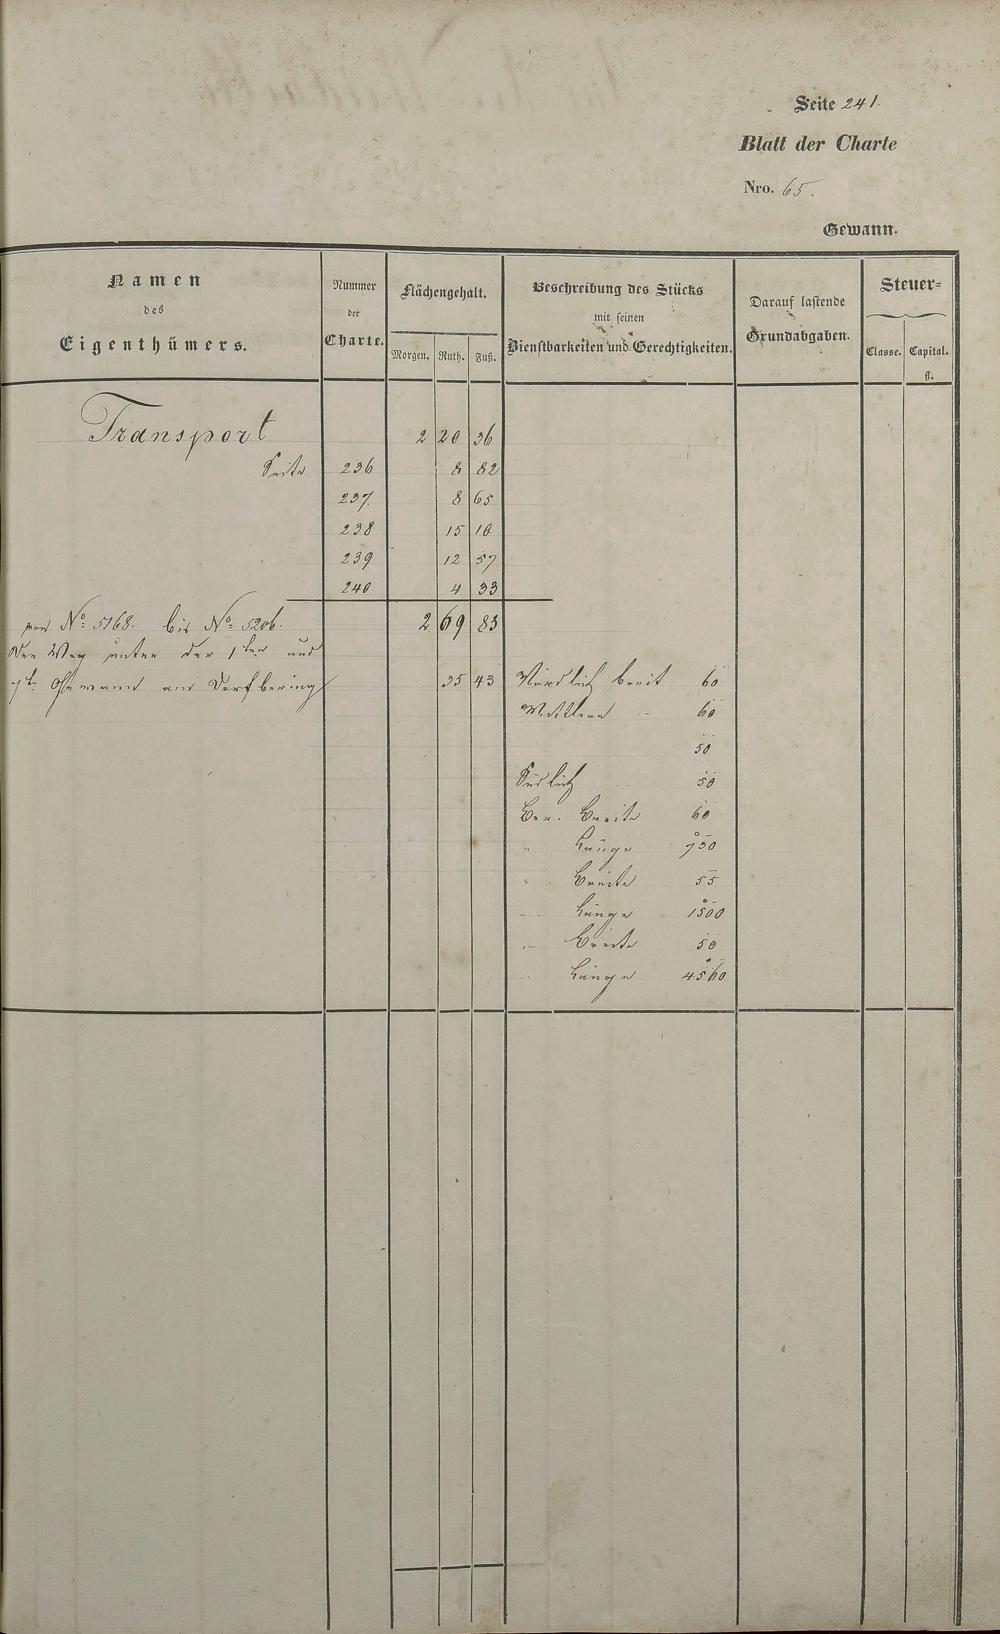 Seite 241.
Blatt der Charte
Nro. 65.
Gewann.
Namen
des
Eigenthümers.
Nummer
der
Charte.
Flächengehalt.
Morgen. Ruth. Fuß.
Beschreibung des Stücks
mit seinen
Dienstbarkeiten und Gerechtigkeiten.
Darauf lastende
Grundabgaben.
Steuer=
Classe. Capital.
fl.
Transport 2 20 36
Seite 236 8 82
237. 8 65
238 15 10
239 12 57
240 4 33
von No. 5168. bis No. 5206. 2 69 83
Der Weg unter der 1ten und
7t. Gewann am Dorfbering 35 43 Nördlich breit 60
Mittlere 60
50
Südlich 50
Ber. Breite 60
" Länge 730
" Breite 55
" Länge 1500
" Breite 50
" Länge 4560